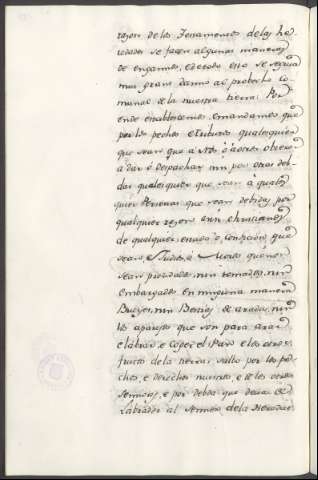 razon de los Terramientos de las he-
redades se facen algunas maneras
de engannos, e de todo esto se seguia
mui grant danno al probecho co-
munal de la nuestra tierra: Por
ende establecemos, e mandamos que
por los pechos e tributos qualesquier
que sean que a Nos ó a otros obieren
a dar ó despachar nin por otras deb-
das qualesquier que sean á quales-
quier Personas que sean debidas por
qualquier razon a nin christianos
de qualquier estado ó condicion que
sean, e Judios, e Moros que non
sean prendados, nin tomados, nin
embargados en ninguna manera
Bueyes, nin Bestias de arada, nin
los aparejos que son para arar
e labrar, e coger el Pan e los otros
fructos de la tierra, salbo por los pe-
chos, e derechos nuestros, e de los otros
Sennores, e por debda que deva el
Labrador al Sennor de la Heredad